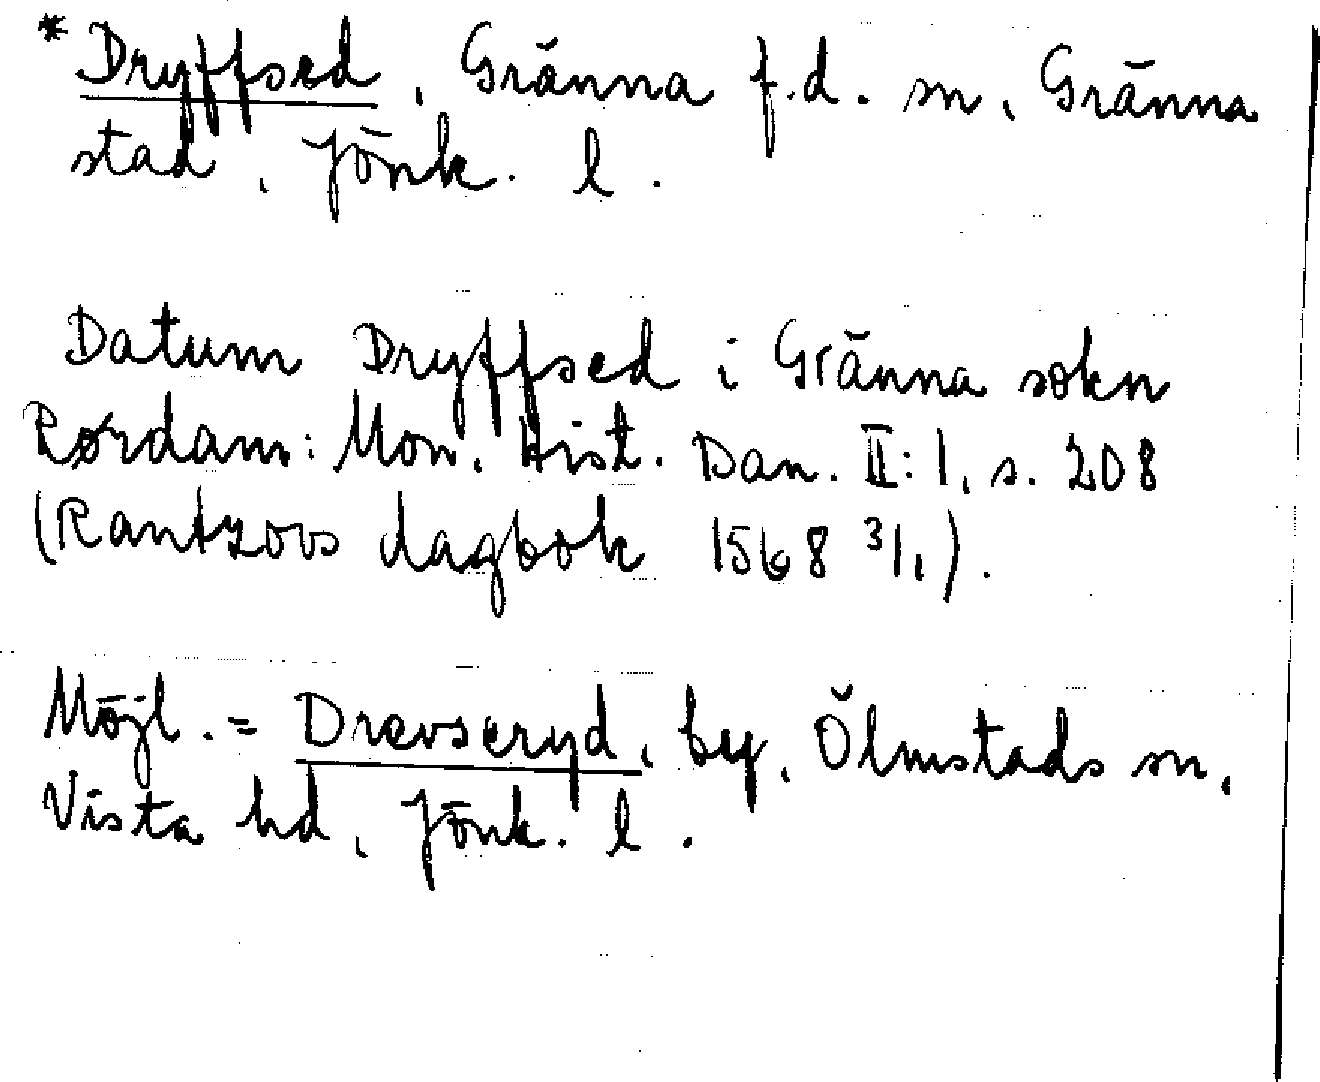 * Dryffsed, Gränna f.d. sn, Gränna
stad, Jönk. l.
Datum Dryffsed i Gränna sokn
Rørdam: Mon. Hist. Dan. II:1, s. 208
(Rantzovs dagbok 1568 3/1).
Möjl. = Drevseryd, by, Ölmstads sn,
Vista hd, Jönk. l.